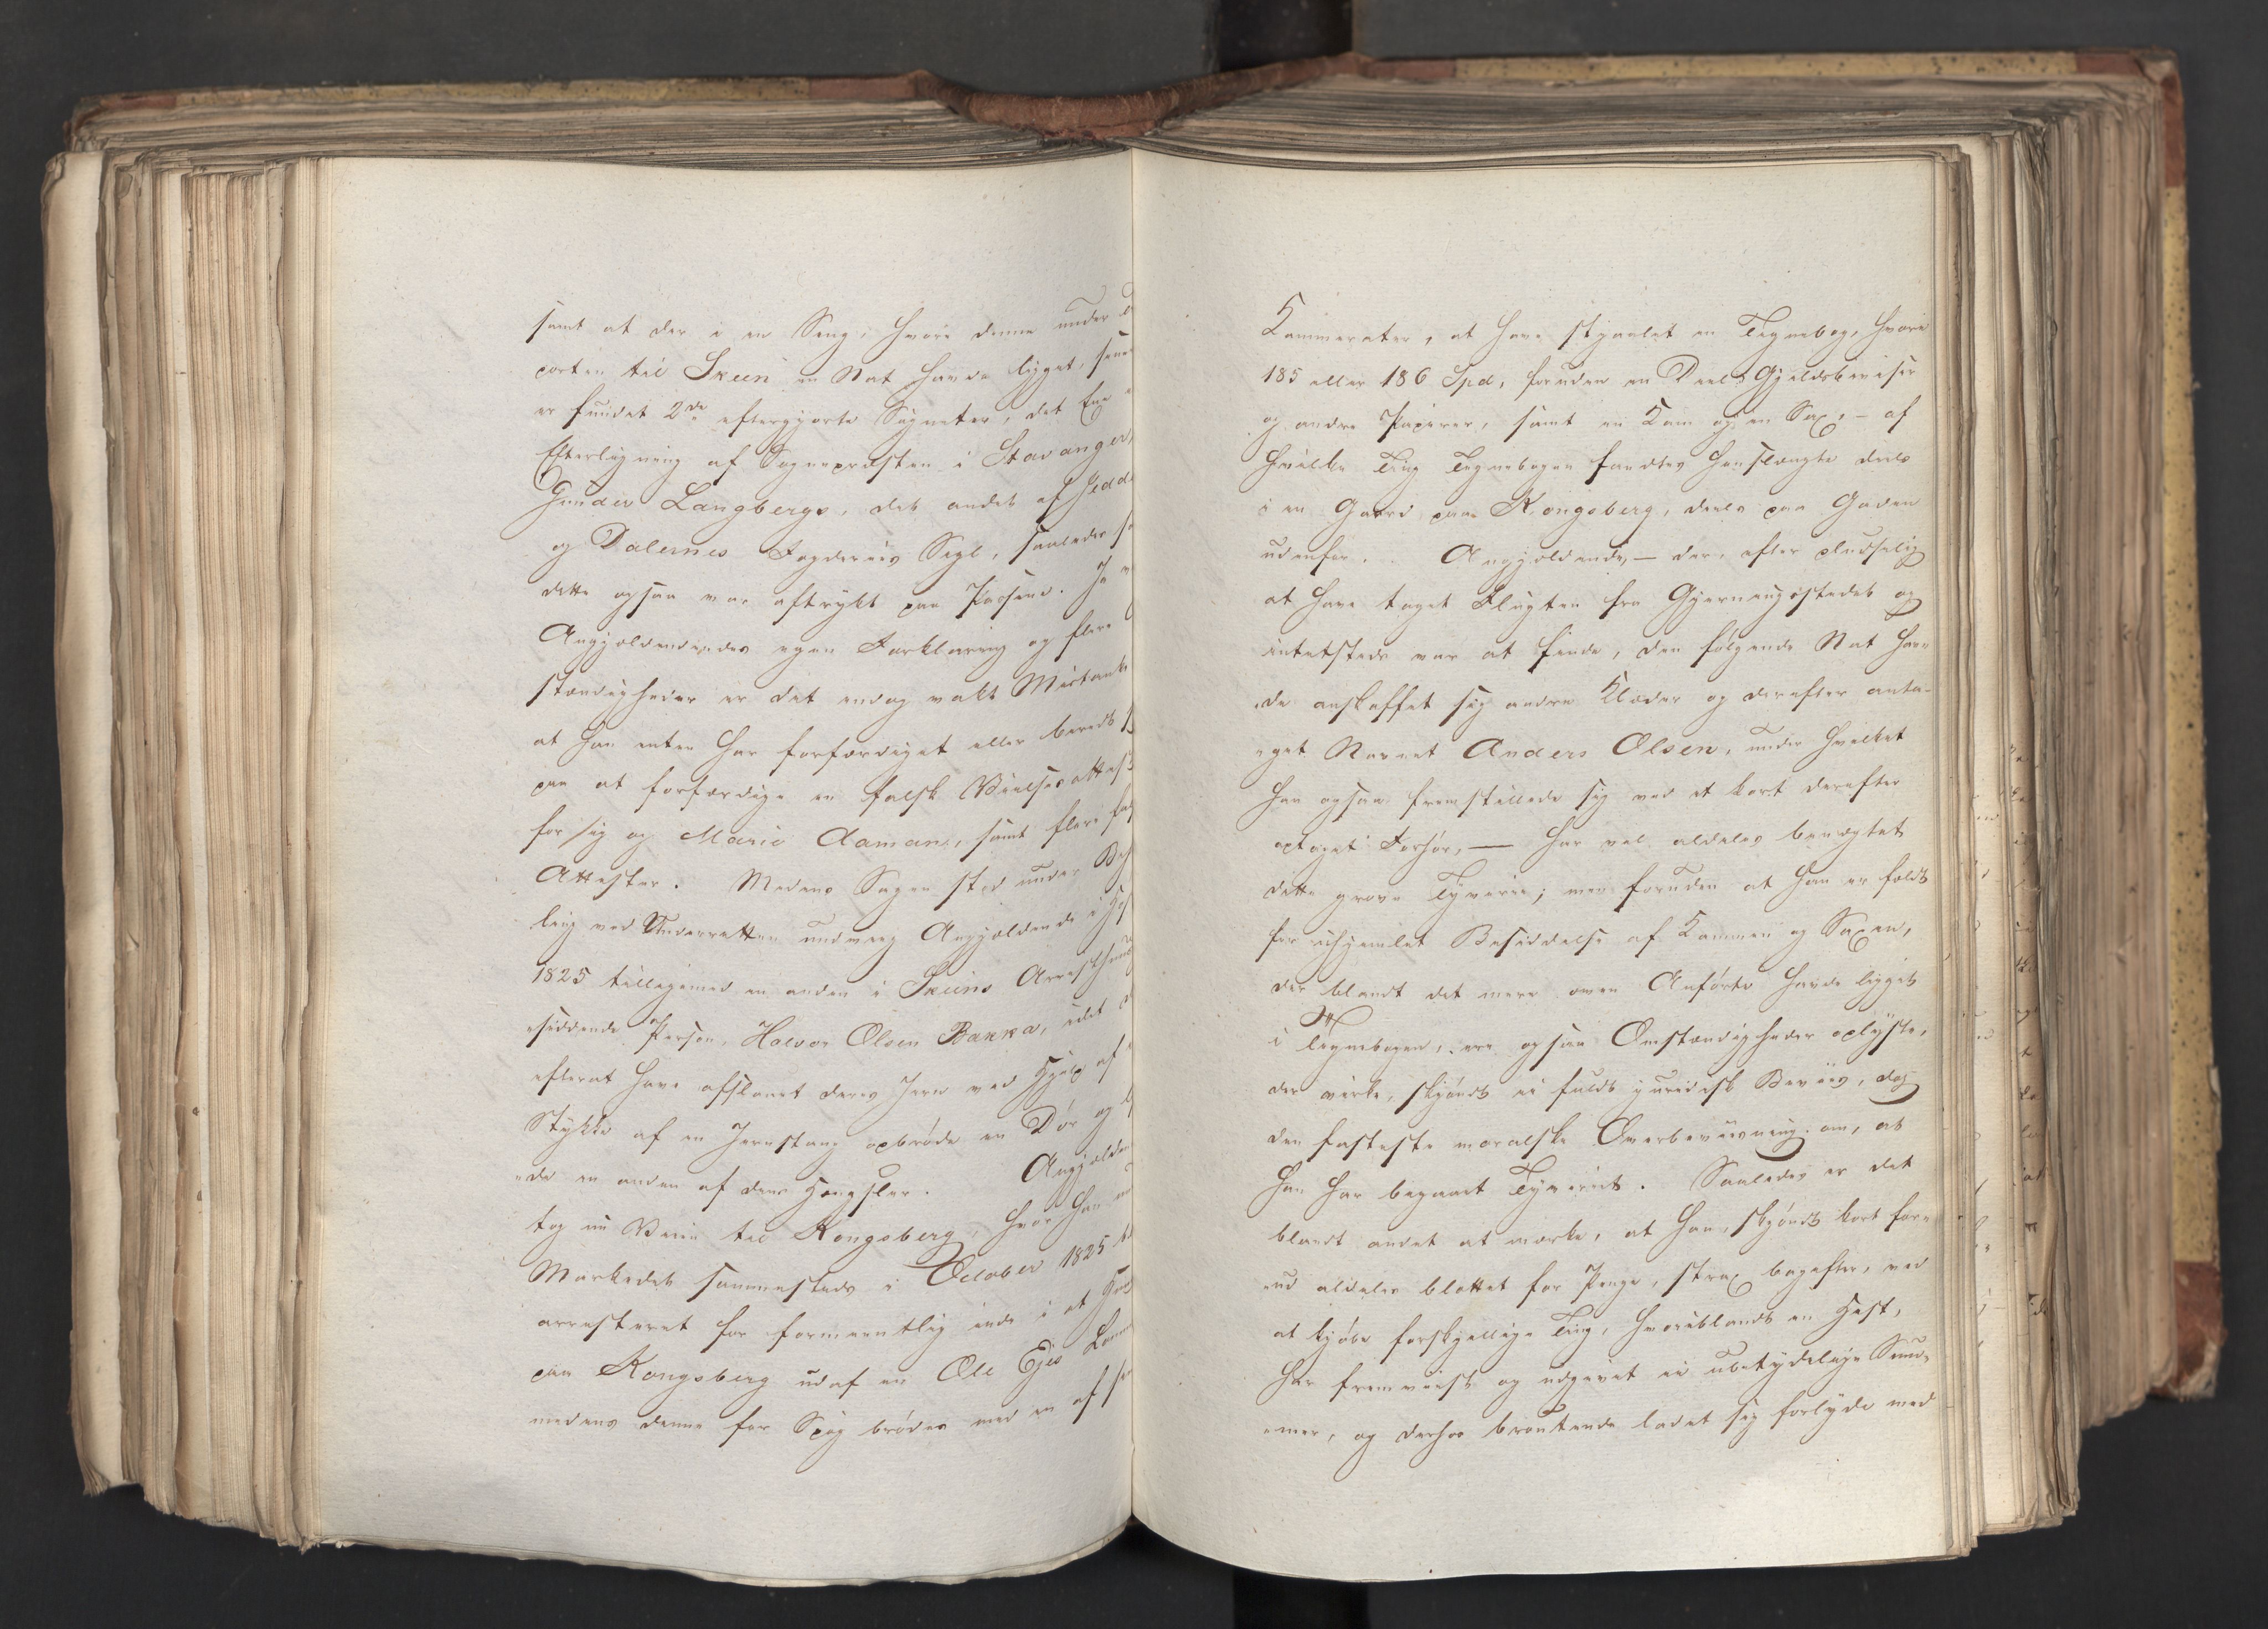 samt at der i en Seng, hvori denne under
porten til Skeen en Nat havde ligget,
er fundet 2de eftergjorte Signeter, det Ene
Efterligning af Sognepræsten i Stavanger,
Gunder Langbergs, det andet af Jedd
og Dalernes Fogderies Segl, saaledes
dette ogsaa var aftrykt paa Passene.
Angjældendes egen Forklaring og flere
stændigheder er det endog vakt Mistanke
at han enten har forfærdiget eller beredt
paa at forfærdige en falsk Vielses attest
for sig og Marie Aamans, samt flere
Attester. Medens Sagen stod under
ling ved Underretten undveeg Angjældende i
1825 tilligemed en anden i Skeens Arresthuus
siddende Person, Halvor Olsen Bakka, idet
efterat have afslaaet deres Jern ved Hjelp af
Stykke af en Jernstang opbrøde en Dør og
de en anden af dens Hængsler. Angjælden
tog nu Veien til Kongsberg, hvor han
Markedet sammesteds i October 1825
arresteret for formeentlig inde i et
paa Kongsberg udaf en Ole
medens denne for Spøg brødes med en af
Kammerater, at have stjaalet en Tegnebog, hvori
185 eller 186 Spd, foruden en Deel Gjeldsbeviser
og andre Papirer, samt en Kam og en Sax, – af
hvilke Ting Tegnebogen fandtes henslængte deels
i en Gaard paa Kongsberg, deels paa Gaden
udenfor. Angjældende, – der, efter pludselig
at have taget Flugten fra Gjerningsstedet og
intetsteds var at finde, den følgende Nat hav„
„de anskaffet sig andre Klæder og derefter anta„
„get Navnet Anders Olsen, under hvilket
han ogsaa fremstillede sig ved et kort derefter
optaget Forhør, — har vel aldeles benægtet
dette grove Tyverie; men foruden at han er fældt
for uhjemlet Besiddelse af Kammen og Saxen,
der blandt det mere oven Anførte havde ligget
i Tegnebogen, ere ogsaa Omstændigheder oplyste,
der virke, skjøndt ei fuldt juridisk Beviis, dog
den fasteste moralske Overbeviisning om, at
han har begaaet Tyveriet. Saaledes er det
blandt andet at mærke, at han, skjøndt kort for„
„ud aldeles blottet for Penge, strax bagefter, ved
at kjøbe forskjellige Ting, hvoriblandt en Hest,
har fremviist og udgivet ei ubetydelige Sum„
„mer, og derhos broutende ladet sig forlyde med